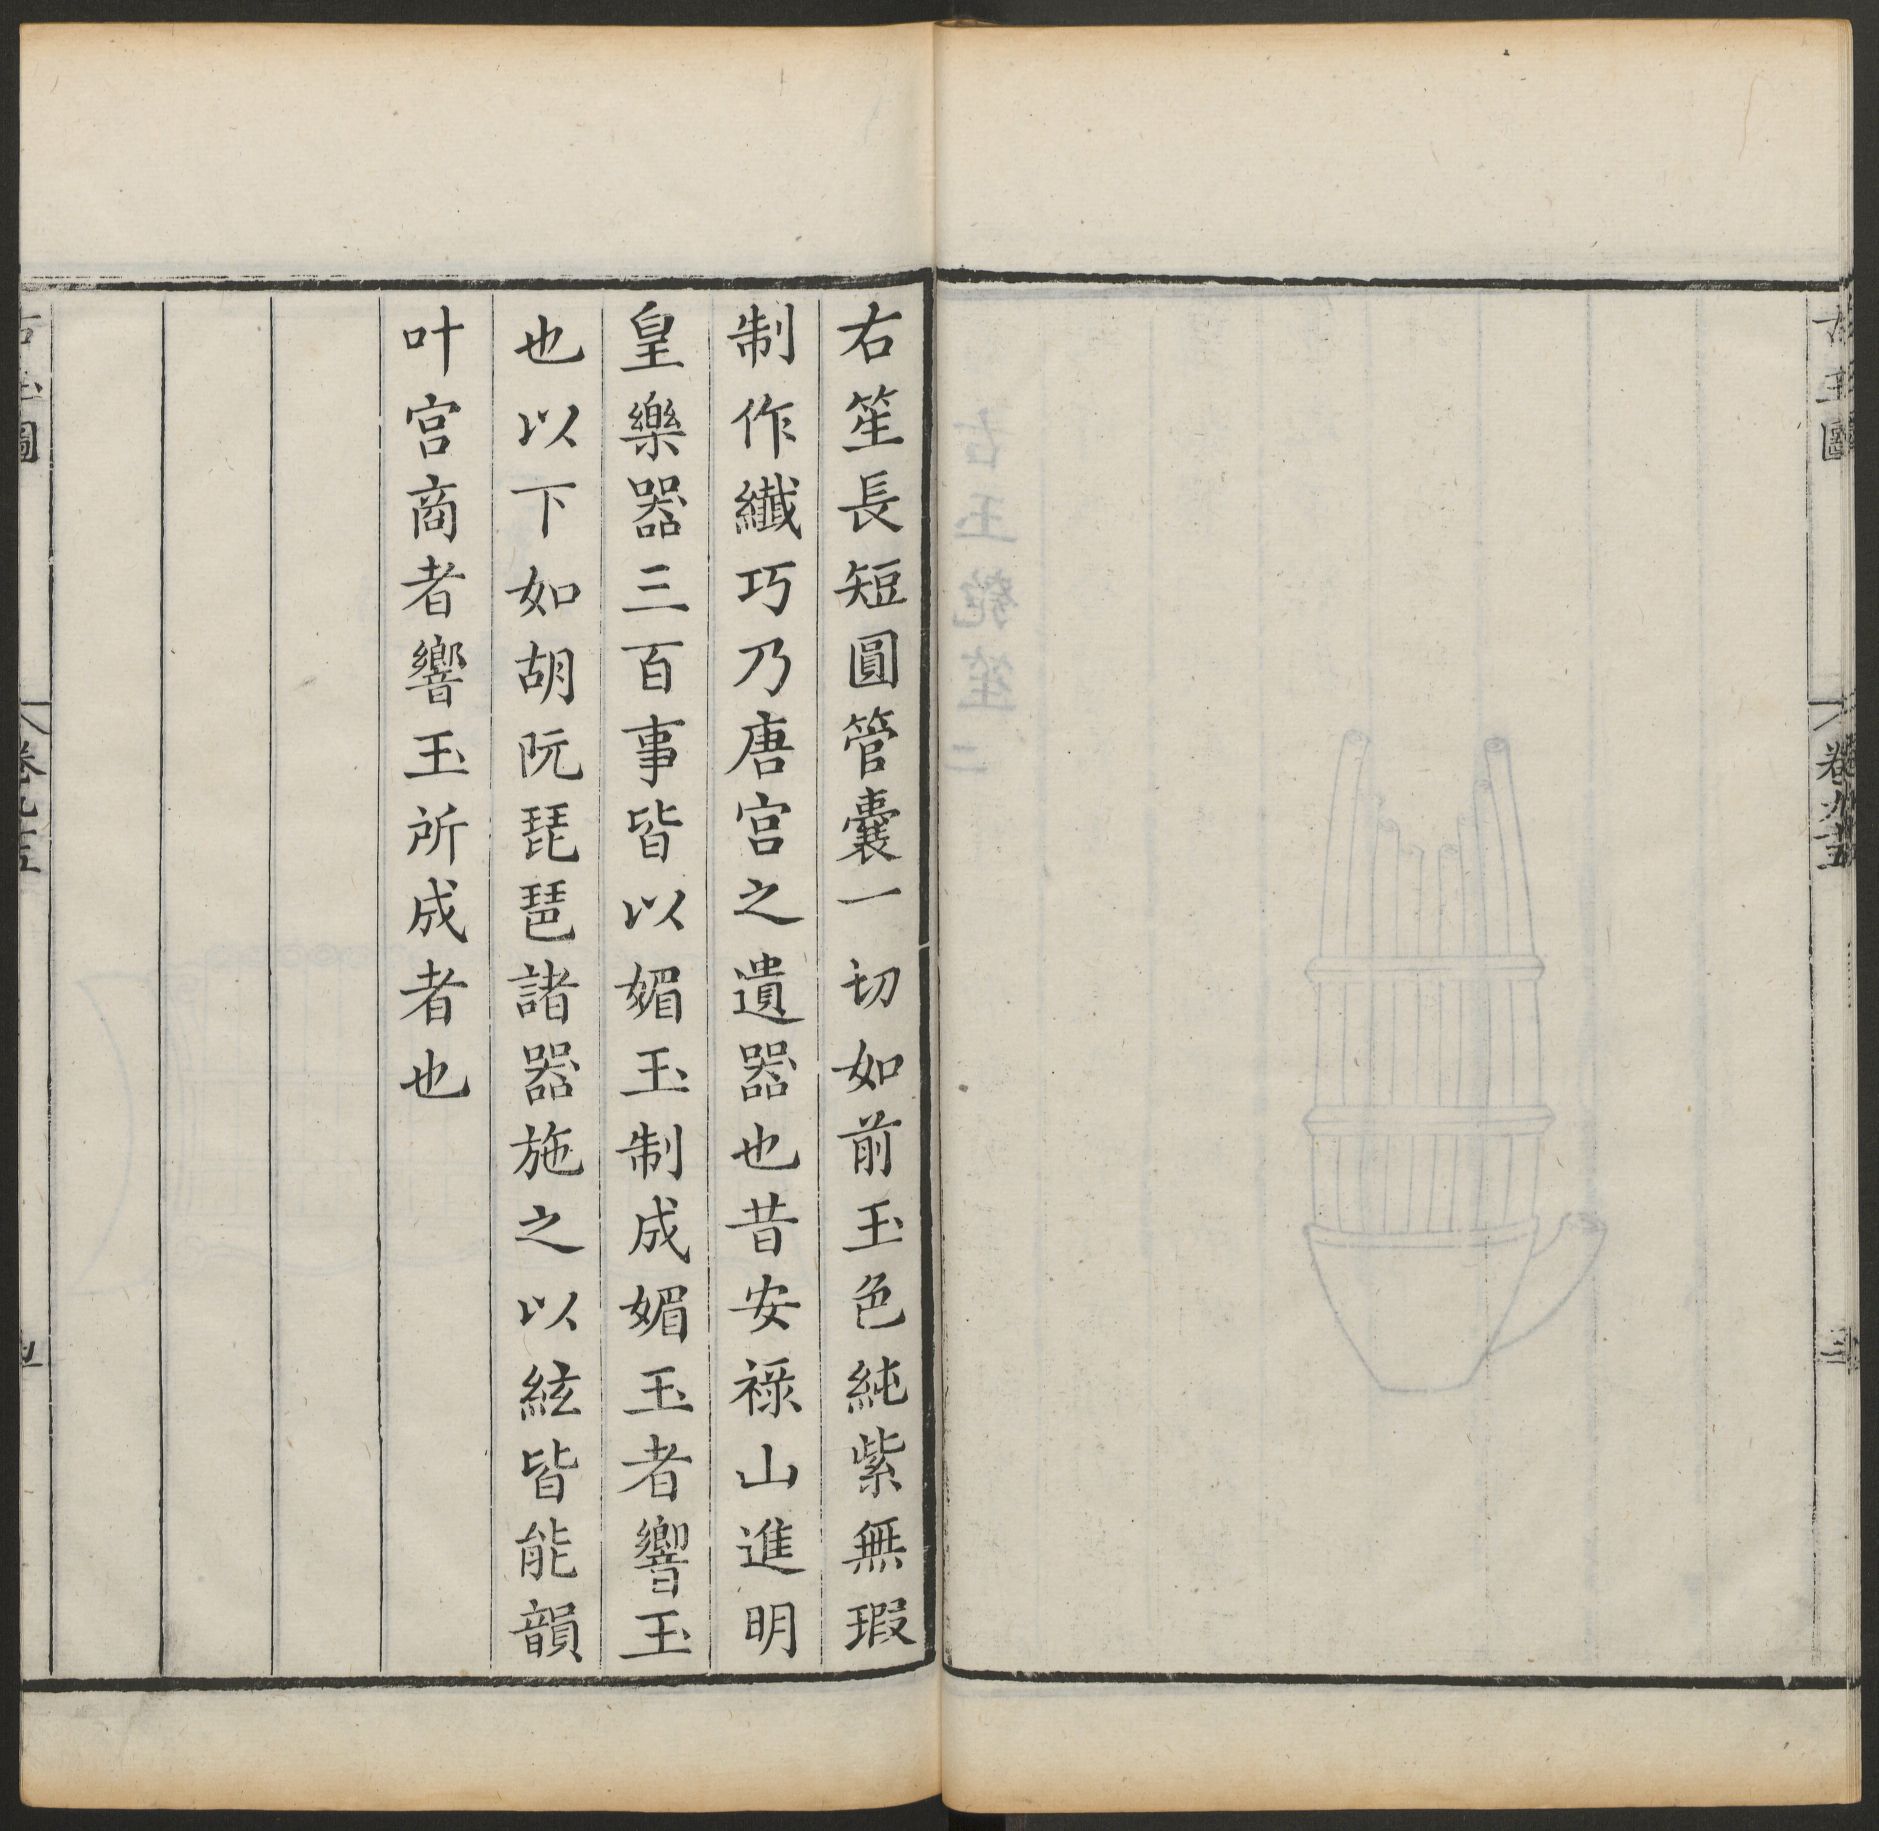 古玉圖
卷九十五
三
右笙長短圓管囊一切如前玉色純紫無瑕
制作纖巧乃唐宮之遺器也昔安祿山進明
皇樂器三百事皆以媚玉制成媚玉者響玉
也以下如胡阮琵琶諸器施之以絃皆能韻
叶宮商者響玉所成者也